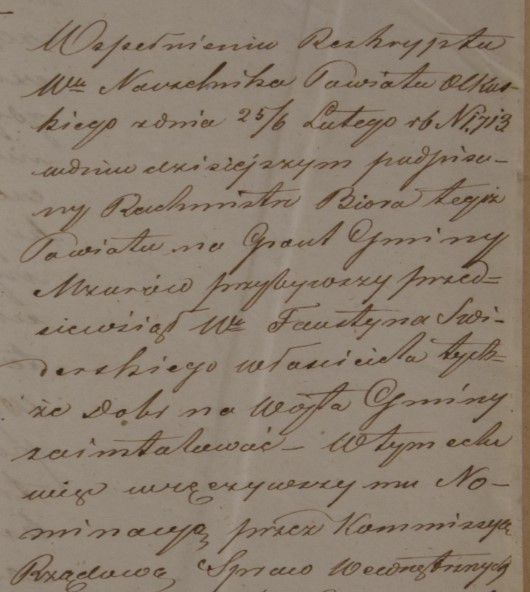 W spełnieniu Reskryptu
Wgo Naczelnika Powiatu Olkus-
kiego z dnia 25/6 Lutego rb N. 1,713
w dniu dzisiejszym podpisa-
ny Rachmistrz Biora tegoż
Powiatu na Grunt Gminy
Mzurów przybywszy przed-
sięwziął Wgo Faustyna Swi-
derskiego właściciela tych-
że Dobr na Wójta Gminy
zainstalować – W tym celu
więc wręczywszy mu No-
minacyą przez Kommissyą
Rządową Spraw Wewnętrznych